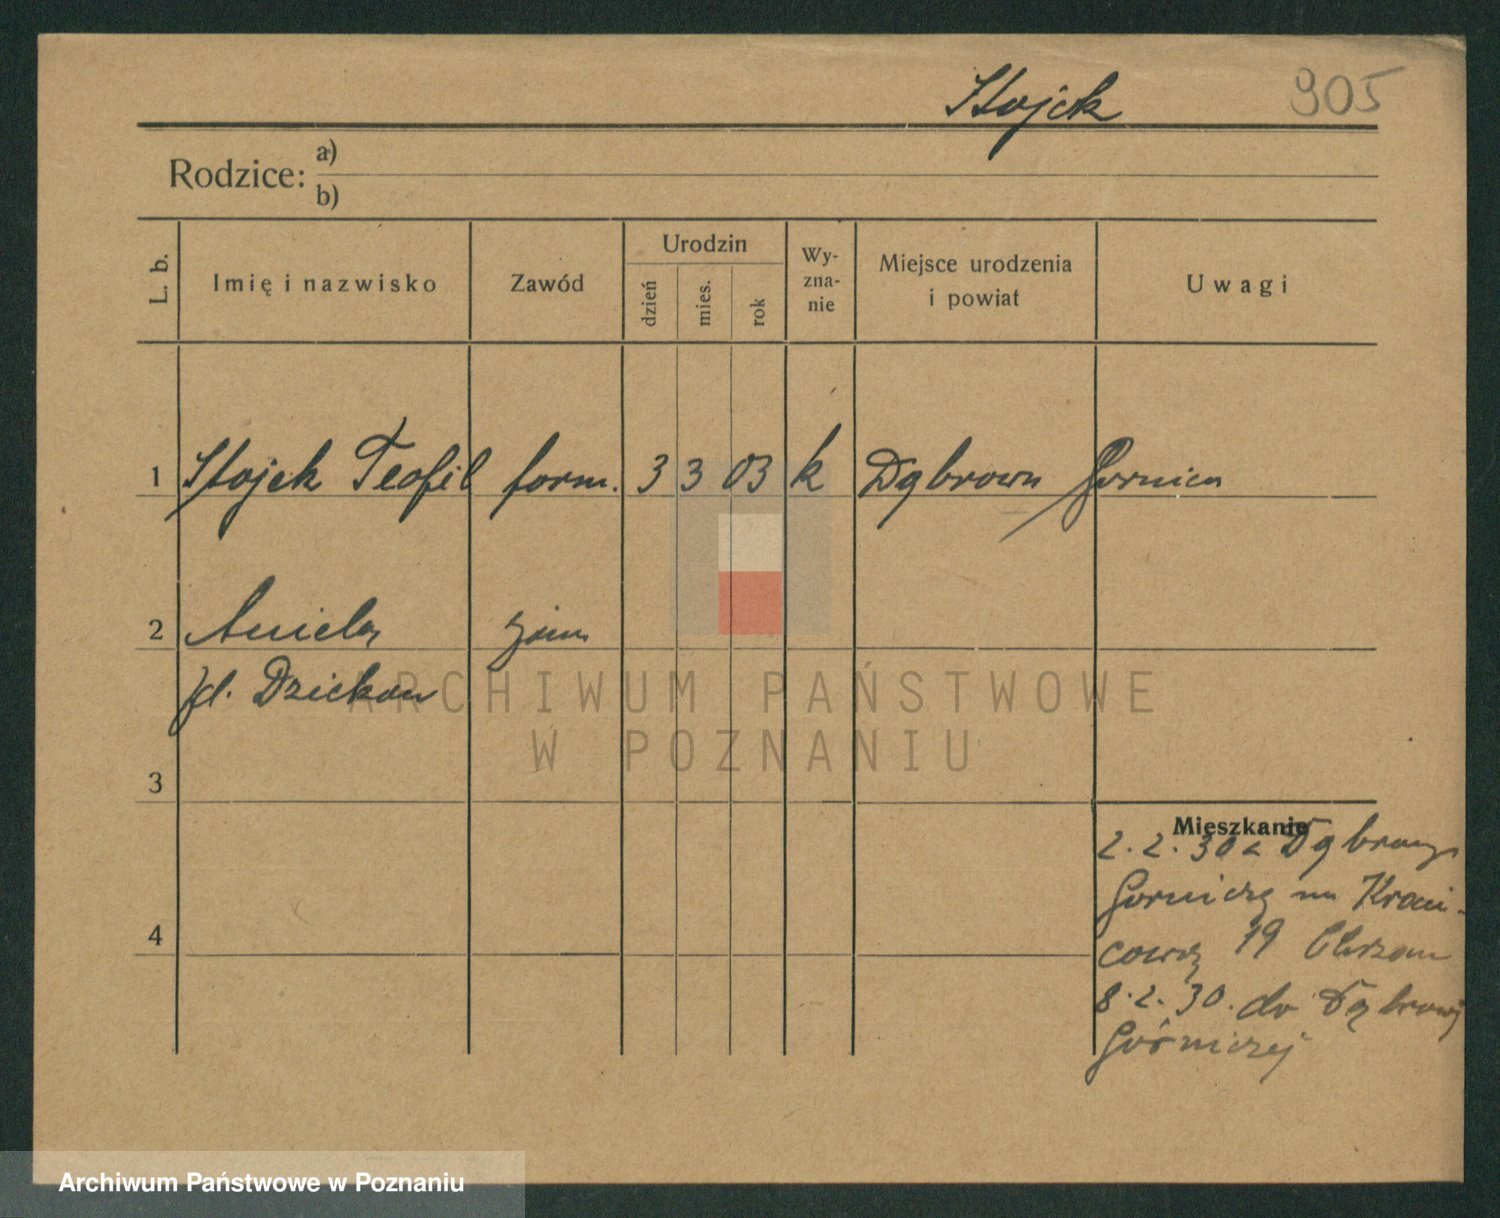 Stojek 905
Rodzice: a)
b)
L. b. Imię i nazwisko Zawód Urodzin dzień mies. rok Wy-zna-nie Miejsce urodzenia i powiat Uwagi
1 Stojek Teofil form. 3 3 03 k Dąbrowa Gornicza
2 Aniela
Dziekan
3
4
Mieszkanie
2.2.30 z Dąbrowy
Gorniczej na
19 Chrzan
8.2.30. do Dąbrowy
Górniczej
ARCHIWUM PAŃSTWOWE
W POZNANIU
Archiwum Państwowe w Poznaniu